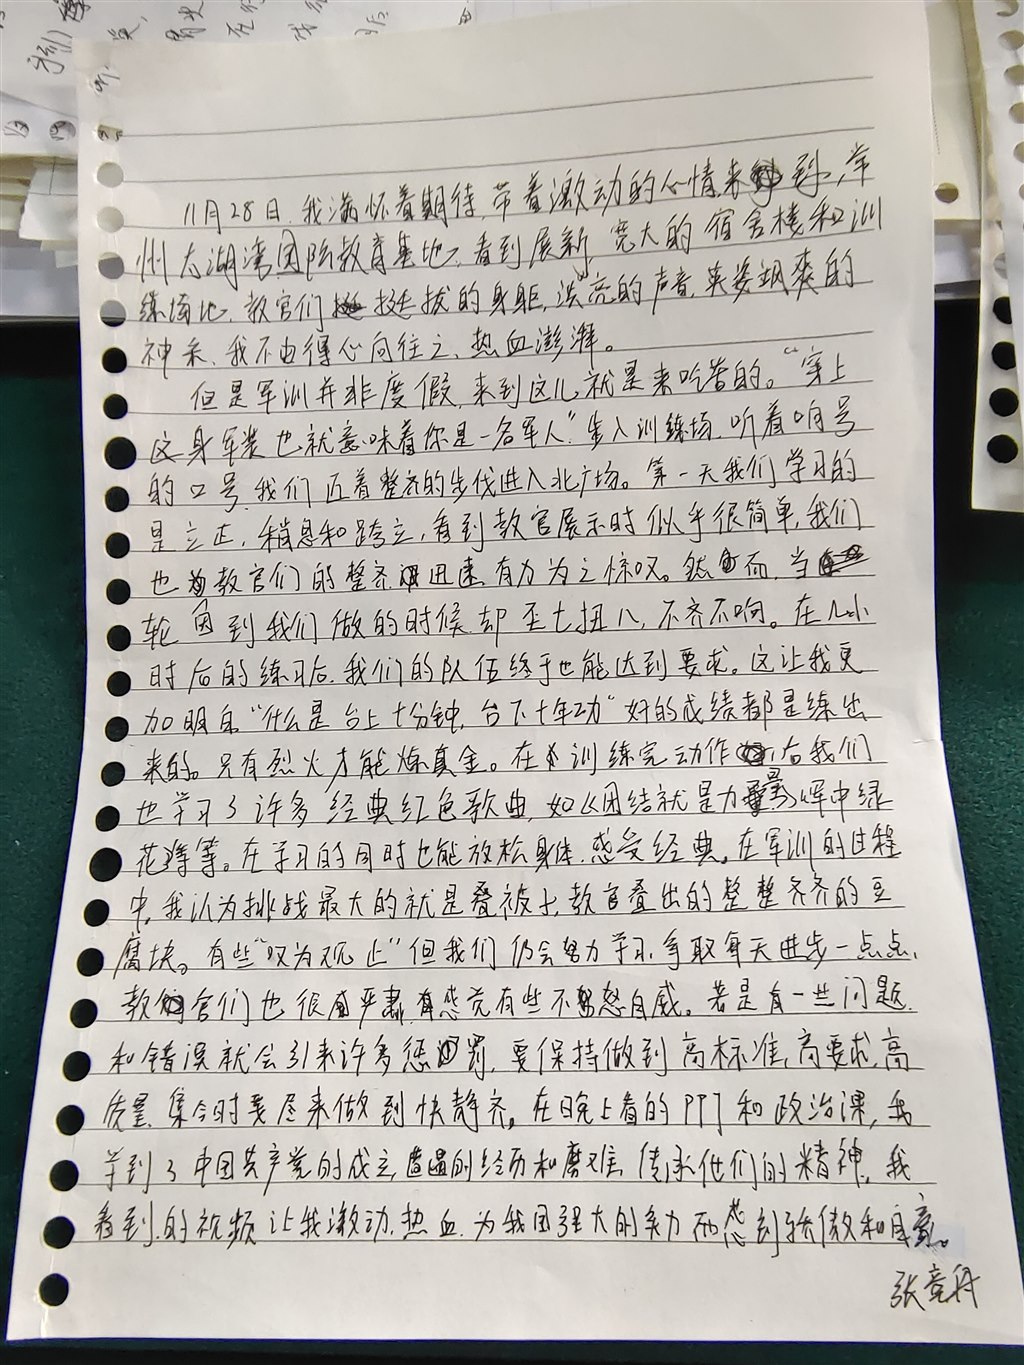 11月28日,我满怀着期待,带着激动的心情来到,常
州太湖湾国防教育基地,看到展新,宽大的宿舍楼和训
练场地,教官们挺拔的身躯,洪亮的声音,英姿飒爽的
神采,我不由得心向往之,热血澎湃。
但是军训并非度假,来到这儿就是来吃苦的。“穿上
这身军装也就意味着你是一名军人”步入训练场,听着响号
的口号,我们迈着整齐的步伐进入北广场。第一天我们学习的
是立正,稍息和跨立,看到教官展示时似乎很简单,我们
也为教官们的整齐迅速有力为之惊叹。然而,当
轮到我们做的时候却歪七扭八,不齐不响。在几小
时后的练习后,我们的队伍终于也能达到要求。这让我更
加明白“什么是台上十分钟,台下十年功”好的成绩都是练出
来的。只有烈火才能炼真金。在训练完动作后我们
也学习了许多经典红色歌曲,如《团结就是力量》军中绿
花等等。在学习的同时也能放松身体,感受经典。在军训的过程
中,我认为挑战最大的就是叠被子,教官叠出的整整齐齐的豆
腐块。有些“叹为观止”但我们仍会努力学习,争取每天进步一点点,
教官们也很严肃,有感觉有些不怒自威。若是有一些问题
和错误就会引来许多惩罚,要保持做到高标准,高要求,高
质量,集合时要尽来做到快静齐。在晚上看的PPT和政治课,我
学到了中国共产党的成立,遭遇的经历和磨难,传承他们的精神,我
看到的视频让我激动,热血,为我国强大的实力而感到骄傲和自豪。